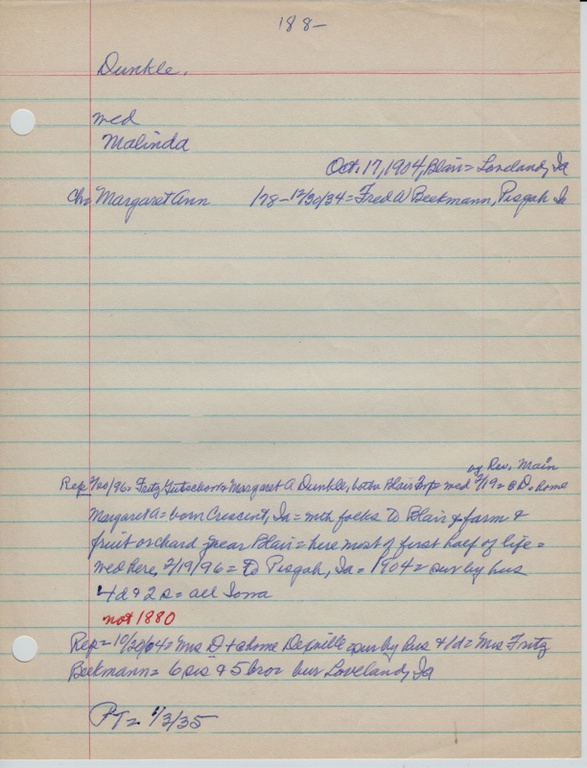 188-
Dunkle,
med
Malinda
Oct. 17, 1904, Blair = Loveland, Ia
Ch = Margaret Ann 178 - 12/30/34 = Fred W Beekmann, Pisgah Ia
by Rev. Main
Rep 2/20/96 = Fritz & Margaret A Dunkle, both Blair = med 2/19 = @ D. home
Margaret A = born Crescent, Ia = with folks to Blair & farm &
fruit orchard near Blair = here most of first half of life =
wed here, 2/19/96 = to Pisgah, Ia = 1904 = sur by hus
4d & 2s = all Iowa
not 1880
Rep = 10/20/04 = Mrs D @ home sur by hus & 1d = Mrs Fritz
Beekmann = 6 sis & 5 bro = bur Loveland, Ia
PT = 1/3/35